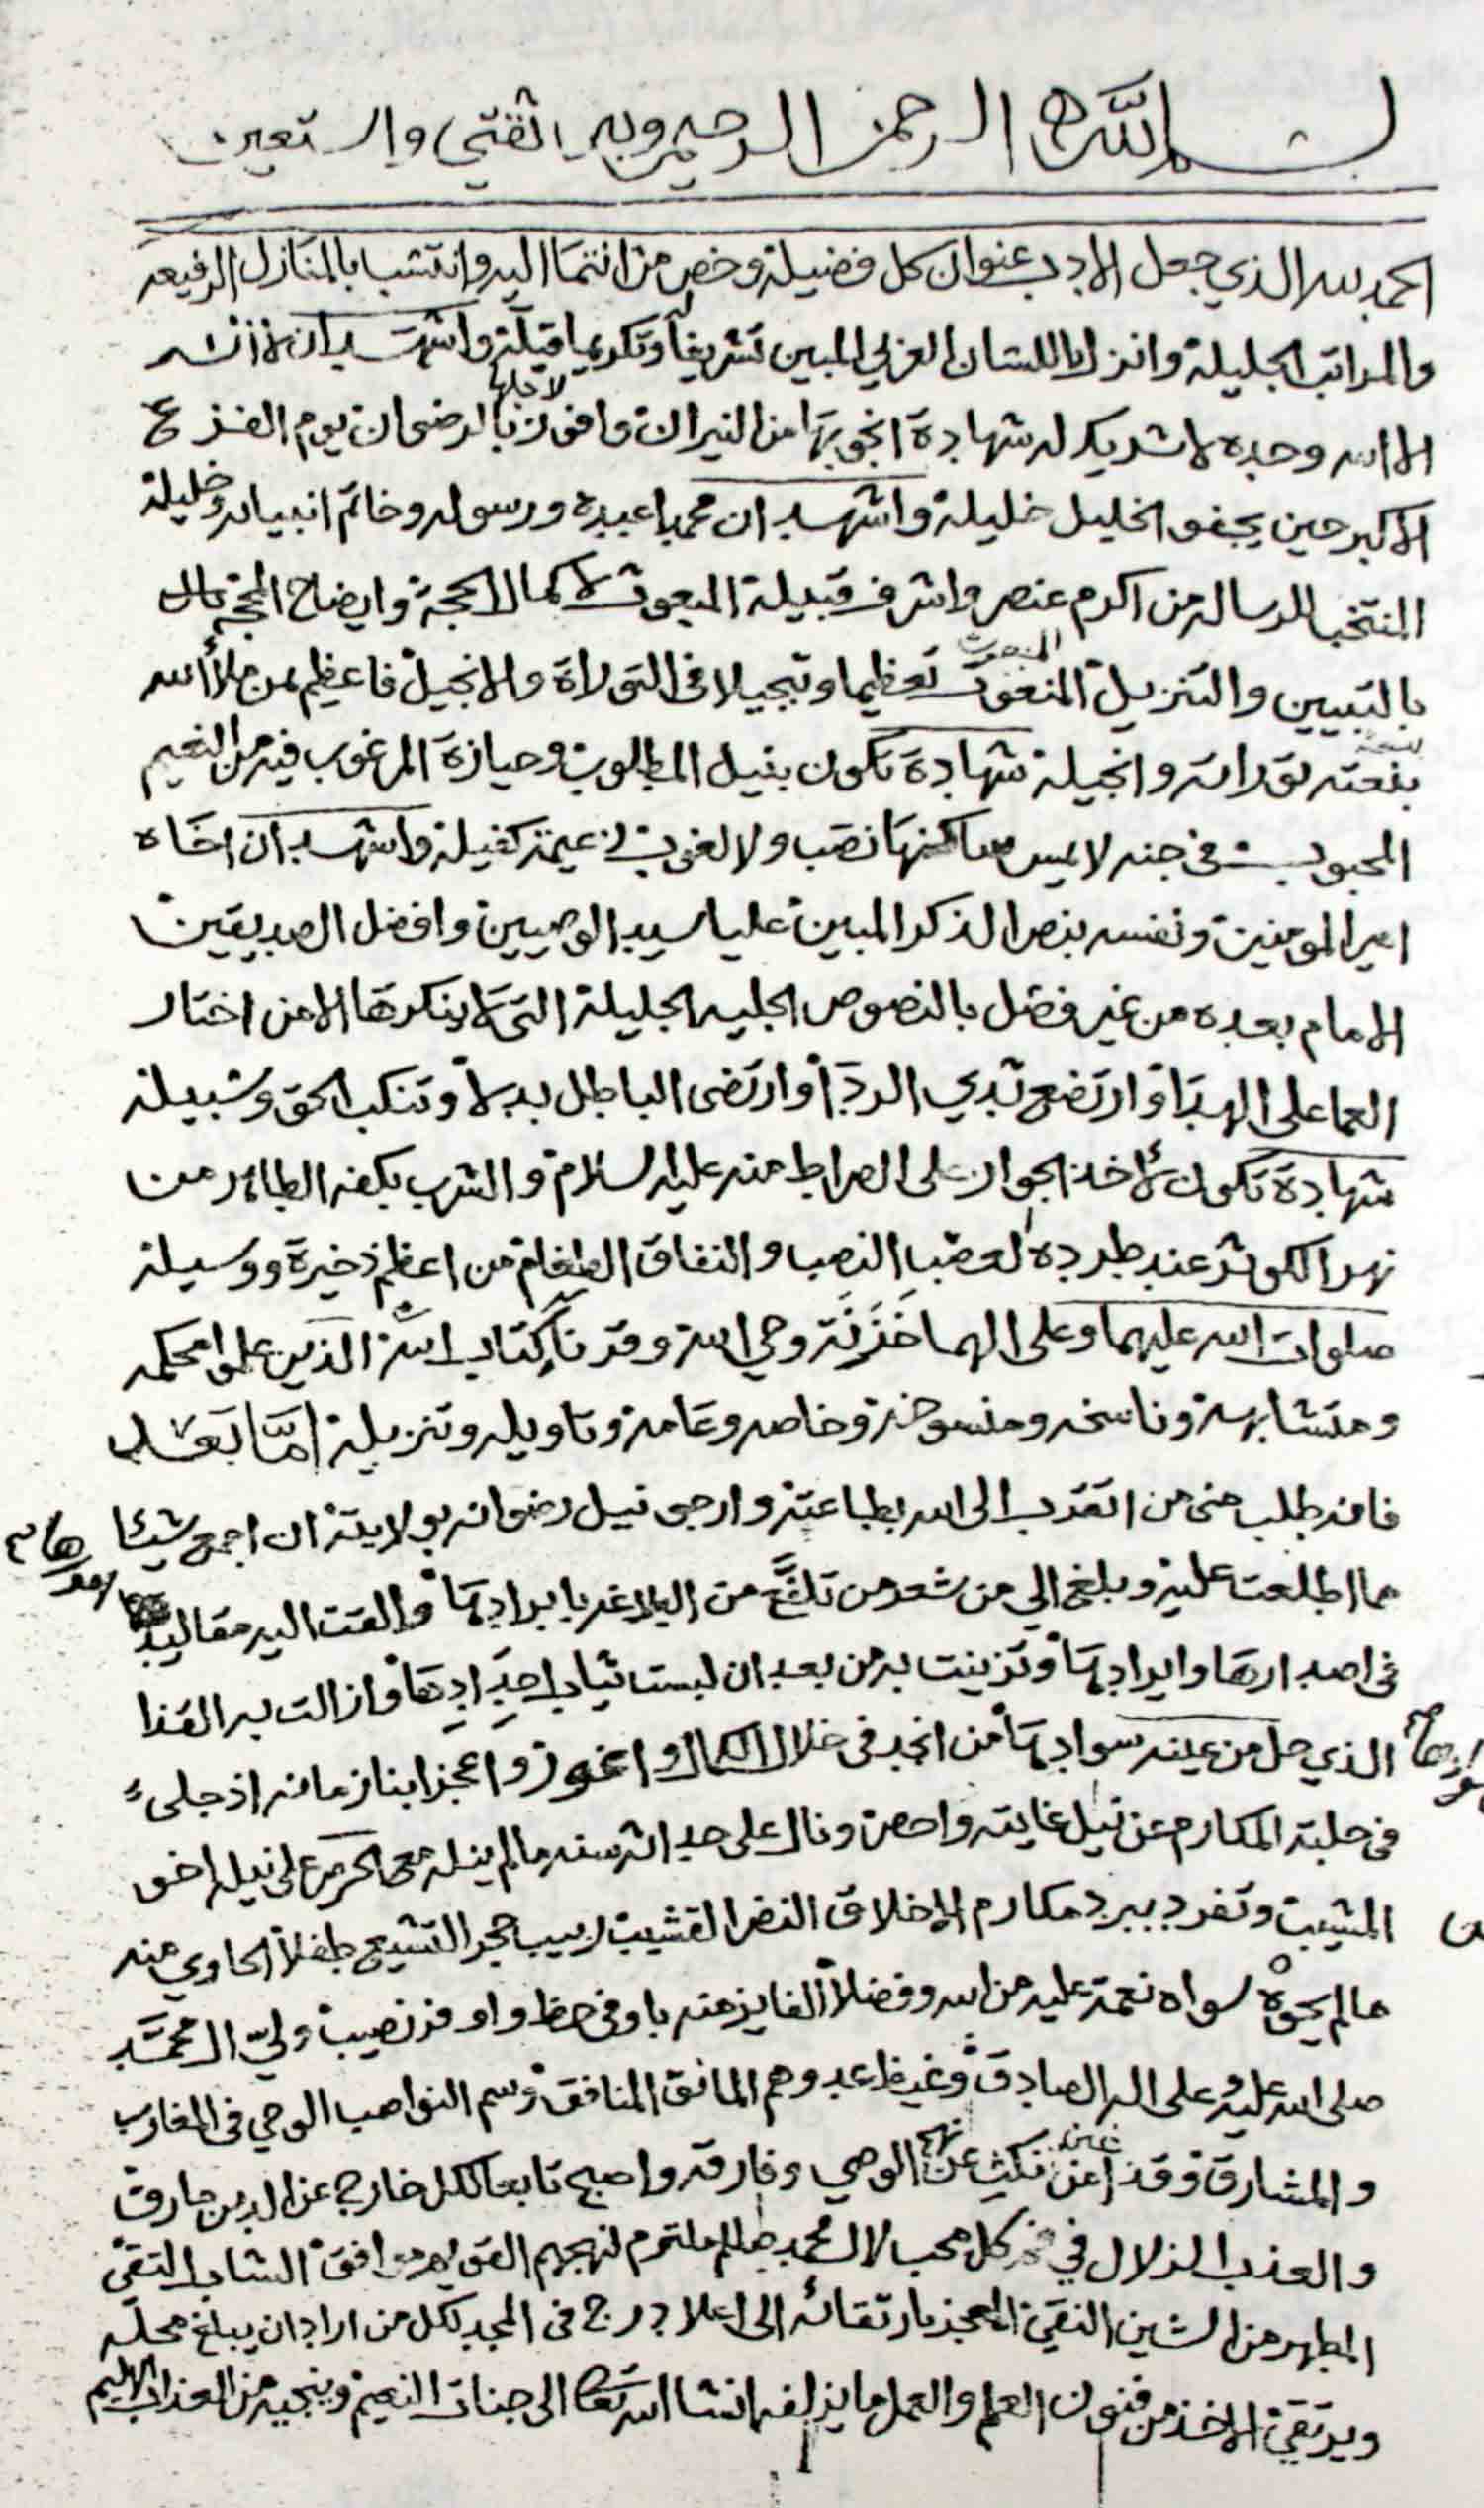 بسم الله الرحمن الرحيم وبه ثقتي واستعين
الحمد لله الذي جعل الادب عنوان كل فضيلة وخص من انتما اليه وانتسب بالمنازل الرفيعه
والمراتب الجليلة وانزل باللسان العربي المبين تشريفا وتكريما قيله واشهد ان لا اله
الا الله وحده لا شريك له شهادة انجو بها من النيران وافوز لاجلها بالرضوان يوم الفزع
الاكبر حين يجفو الخليل خليله واشهد ان محمدا عبده ورسوله وخاتم انبيائه وخليله
المنتخب للرساله من اكرم عنصر واشرف قبيلة المبعوث لاكمال الحجة وايضاح المحجة
بالتبيين والتنزيل المنعوت تعظيما وتبجيلا في التوراة والانجيل فاعظم بمن ملأ الله
بنعته توراته وانجيله شهادة تكون بنيل المطلوب وحيازة المرغوب فيه من النعيم
المحبوب في جنه لا يمس ساكنها نصب ولا لغوب زعيمة كفيله واشهد ان اخاه
امير المومنين ونفسه بنص الذكر المبين عليا سيد الوصيين وافضل الصديقين
الامام بعده من غير فصل بالنصوص الجليه الجليلة التي لا ينكرها الا من اختار
العما على الهدا وارتضع ثدي الردا وارتضى الباطل بدلا وتنكب الحق وسبيله
شهادة تكون لأخذ الجواز على الصراط منه عليه السلام والشرب بكفه الطاهر من
نهر الكوثر عند طرده لعصب النصب والنفاق الطغام من اعظم ذخيرة ووسيله
صلوات الله عليهما وعلى الهما خَزَنَة وحي الله وقرناء كتاب الله الذين علموا محكمه
ومتشابهه وناسخه ومنسوخه وخاصه وعامه وتاويله وتنزيله امّا بعد
فانه طلب منى من اتقرب الى الله بطاعته وارجو نيل رضوانه بولايته ان اجمع شيئا
مما اطلعت عليه وبلغ الي من شعر من تلفَّع من البلاغه بابرادها والقت اليه مقاليدها
في اصدارها وايرادها وتزينت به من بعد ان لبست ثياب احدادها وازالت به القذا
الذي حل من عينه سوادها من انجد في خلال الكمال واغور واعجز ابنا زمانه اذ جلى
في حلبة المكارم عن نيل غايته واحصر ونال على حداثة سنه ما لم ينله مع الحرص على نيله اخو
المشيب وتفرد ببرد مكارم الاخلاق النضر القشيب ربيب حجر التشيع طفلا الحاوي منه
ما لم يحوه سواه نعمة عليه من الله وفضلا الفايز منه باوفى حظ واوفر نصيب وليّ ال محمّد
صلى الله عليه وعلى اله الصادق وغيظ عدوهم المانق المنافق وسم النواصب الوحي في المغارب
والمشارق وقذا عين من نكث عن نهج الوصي وفارقه واصبح تابعا لكل خارج عن الدين مارق
والعذب الزلال في فم كل محب لال محمد ملتزم لنهجهم القويم موافق الشاب التقي
المطهر من الشين النقي المعجز بارتقائه الى اعلا درج في المجد لكل من اراد ان يبلغ محله
ويرتقي الاخذ من فنون العلم والعمل ما يزلفه انشا الله تعا الى جنات النعيم وينجيه من العذاب الاليم